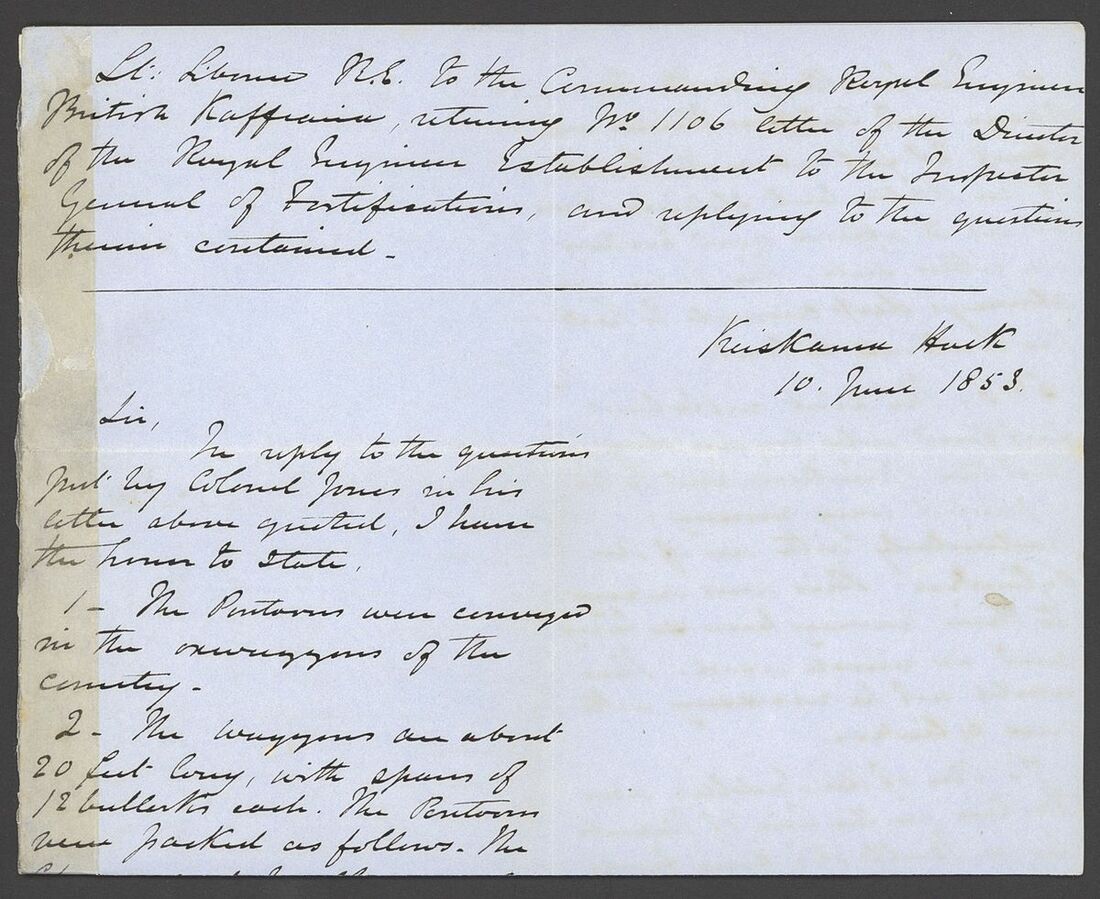 Lt: Siborne R.E. to the Commanding Royal Engineer
British Kaffraria, returning No. 1106 letter of the Director
of the Royal Engineer Establishment to the Inspector
General of Fortifications, and replying to the questions
therein contained.
Keiskama Hoek
10. June 1853.
Sir,
In reply to the questions
put by Colonel Jones in his
letter above quoted, I have
the honor to state,
1 - The Pontoons were conveyed
in the oxwaggons of the
country -
2 - The waggons are about
20 feet long, with spans of
12 bullocks each. The Pontoons
were packed as follows - The